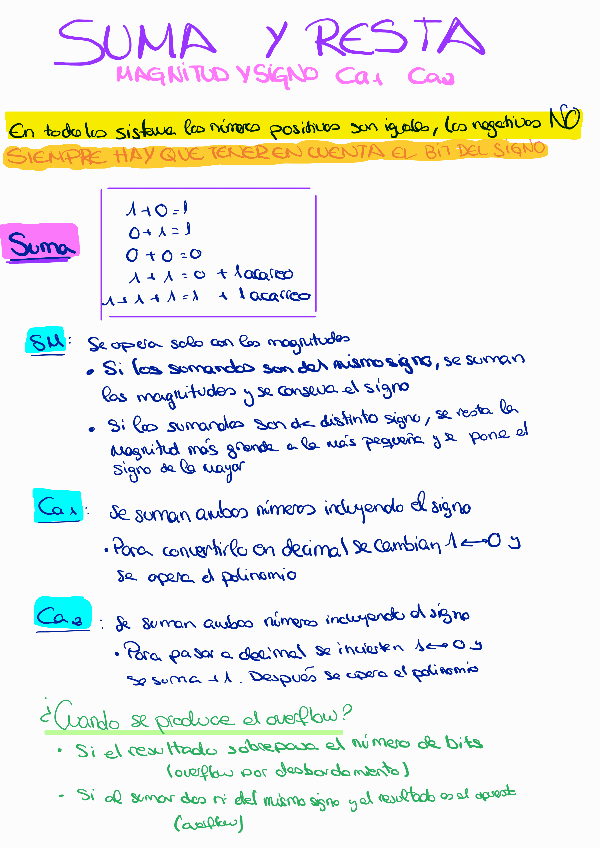 SUMA Y RESTA
MAGNITUD Y SIGNO Ca1 Ca2
En todo los sistema los números positivos son iguales, los negativos NO
SIEMPRE HAY QUE TENER EN CUENTA EL BIT DEL SIGNO
Suma
1+0=1
0+1=1
0+0=0
1+1=0 + 1 acarreo
1+1+1=1 + 1 acarreo
SM: Se opera solo con las magnitudes
• Si los sumandos son del mismo signo, se suman
las magnitudes y se conserva el signo
• Si los sumandos son de distinto signo, se resta la
magnitud más grande a la más pequeña y se pone el
signo de la mayor
Ca1: Se suman ambos números incluyendo el signo
• Para convertirlo en decimal se cambian 1⟷0 y
se opera el polinomio
Ca2: Se suman ambos números incluyendo el signo
• Para pasar a decimal se invierten 1⟷0 y
se suma +1. Después se opera el polinomio
¿Cuando se produce el overflow?
• Si el resultado sobrepasa el número de bits
(overflow por desbordamiento)
- Si al sumar dos nº del mismo signo y el resultado es el opuesto
(overflow)